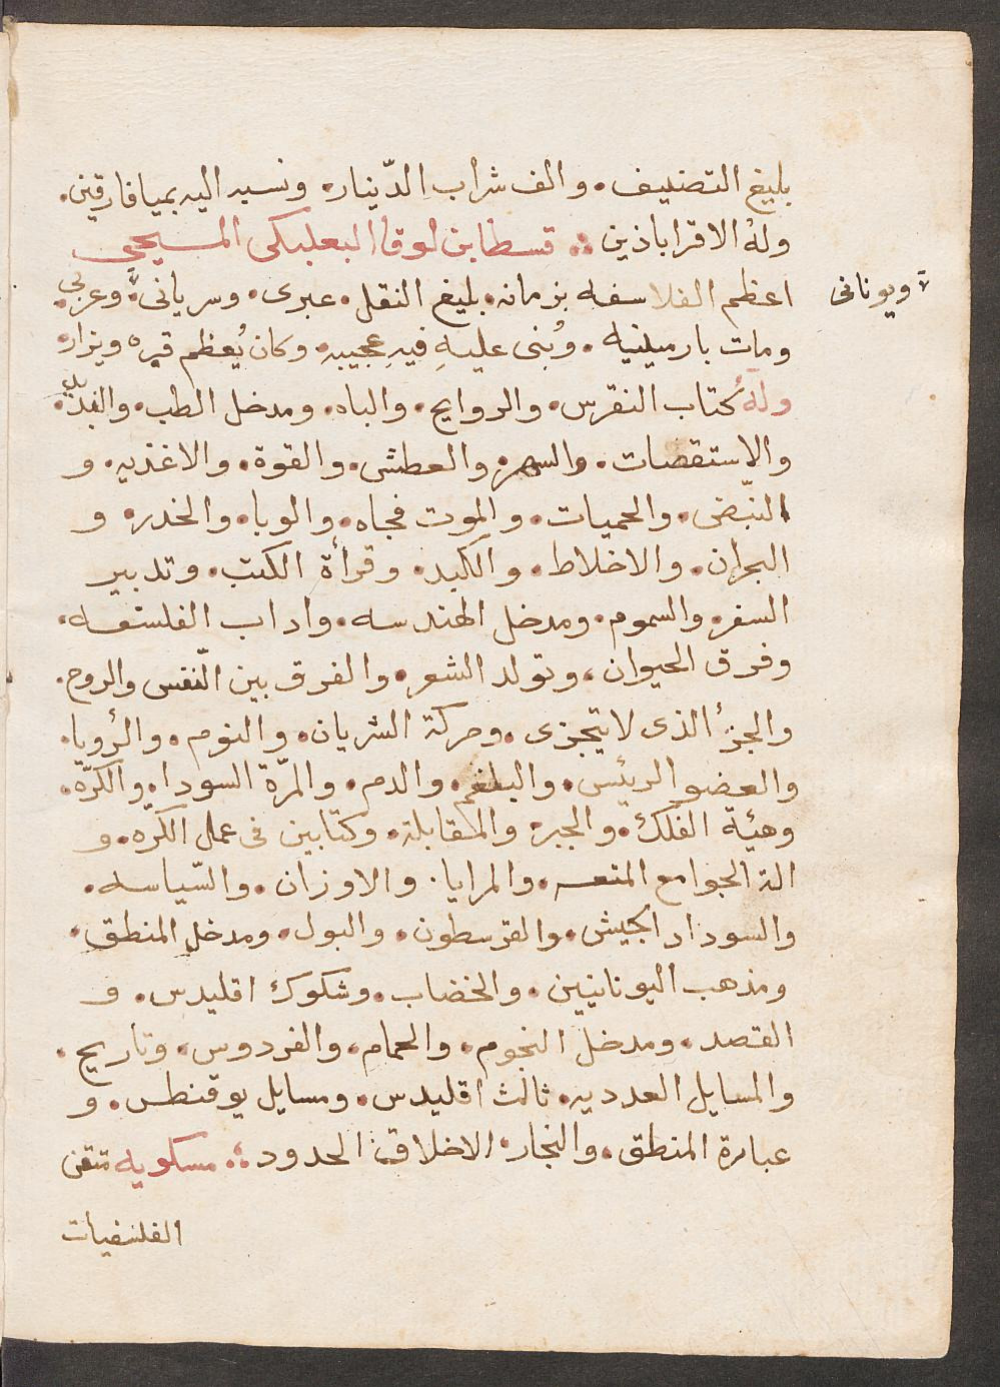 بليغ التصنيف. والف شراب الدّينار. ونسبه اليه بميافارقين.
وله الاقراباذين. قسطا بن لوقا البعلبكى المسيحى
اعظم الفلاسفه بزمانه. بليغ النقل. عبرى. وسريانى. وعربي.
ويونانى
ومات بارمينيه. وبُنى عليهِ فيهِ عجيبه. وكان يُعظم قبره ويزار.
وله كتاب النقرس. والروايح. والباه. ومدخل الطب.
والاستقصات. والسهر. والعطش. والقوة. والاغذيه. و
النّبض. والحميات. والموت فجاه. والوبا. والخدر. و
البحران. والاخلاط. والكبد. وقرأة الكتب. وتدبير
السفر. والسموم. ومدخل الهندسه. واداب الفلسفه.
وفرق الحيوان. وتولد الشعر. والفرق بين النّفس والروح.
والجزٔ الذى لا يتجزى. وحركة الشريان. والنوم. والرٔويا.
والعضو الرئيس. والبلغم. والدم. والمرّة السودا. والكرّه.
وهئية الفلك. والجبر. والمقابلة. وكتابين فى عمل الكرّه. و
الة الجوامع. والمرايا. والاوزان. والسّياسه.
والسودا الجيش. والقرسطون. والبول. ومدخل المنطق.
ومذهب اليونانيين. والخضاب. وشكوك اقليدس. و
القصد. ومدخل النجوم. والحمام. والفردوس. وتاريخ.
والمسايل العدديه. ثالث اقليدس. ومسايل يوقنطس. و
عبارة المنطق. والنجار. الاخلاق. الحدود. مسكويه تتقن
الفلسفيات